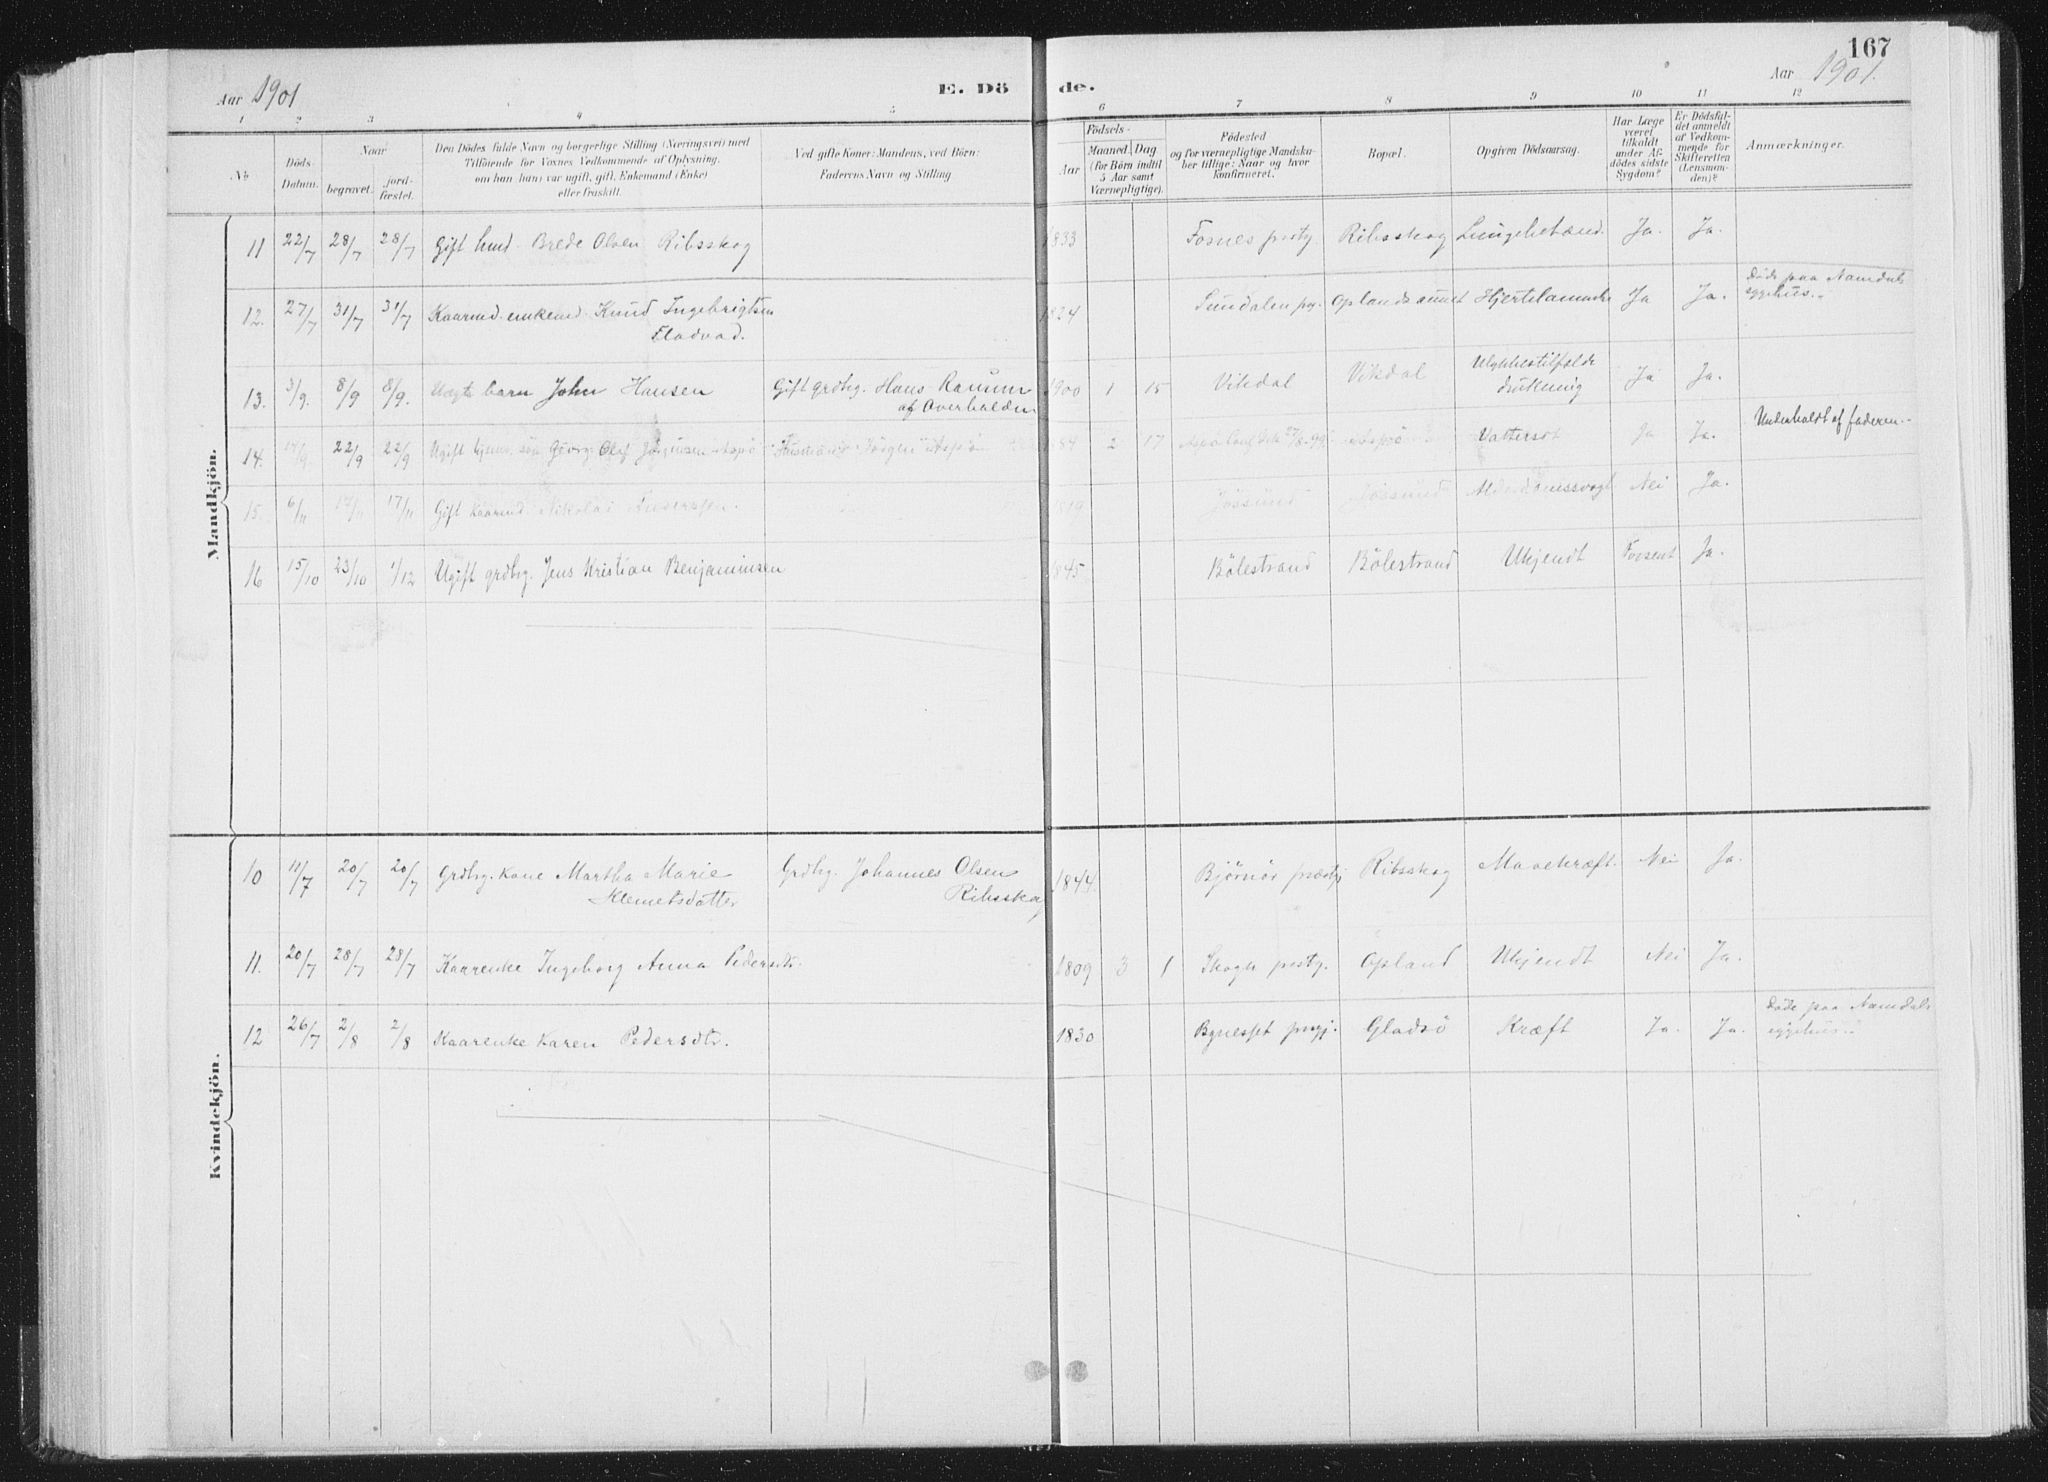 167
Aar 1901
E. Döde.
Aar 1901.
1 2 3 4 5 6 7 8 9 10 11 12
№
Döds-Datum.
Naar
begravet.
jordfæstet.
Den Dödes fulde Navn og borgerlige Stilling (Næringsvei) med
Tilföiende for Voxnes Vedkommende af Oplysning,
om han (hun) var ugift, gift, Enkemand (Enke)
eller fraskilt.
Ved gifte Koner: Mandens, ved Börn:
Faderens Navn og Stilling
Födsels-
Aar
Maaned. Dag
(for Börn indtil
5 Aar samt
Værnepligtige).
Födested
og for værnepligtige Mandska-
ber tillige: Naar og hvor
konfirmeret.
Bopæl.
Opgiven Dödsaarsag.
Har Læge
været
tilkaldt
under Af-
dödes sidste
Sygdom?
Er Dödsfal-
det anmeldt
af Vedkom-
mende for
Skifteretten
(Lensman-
den)?
Anmærkninger.
Mandkjön.
11 22/7 28/7 28/7 Gift hmd. Brede Olsen Ribsskog 1833 Fosnes prstg. Ribsskog Lungebetænd. Ja. Ja.
12. 27/7 31/7 31/7 Kaarmd. enkemd. Knud Ingebrigtsen Fladvad. 1824 Sundalen pg. Oplandsaunet Hjertelammelse Ja Ja. Døde paa Namdals sygehus.
13. 3/9. 8/9 8/9. Uægte barn John Hansen Gift grdbrg. Hans Ranum af Overhalden 1900 1 15 Vikdal Vikdal Ulykkestilfælde drukning Ja Ja.
14. 14/9. 22/9 22/9 Ugift Georg Olaf Jørgensen Aspö Husmand Jørgen Aspö 1884 2 17 Aspö Vattersot Ja Ja. Underholdt af faderen.
15. 6/11 17/11 17/11 Gift kaarmd. Nikolai Andersen. 1819 Jössund Jössund Alderdomssvagh. Nei Ja.
16 15/10 23/10 1/12 Ugift grdbrg. Jens Kristian Benjaminsen 1845 Bölestrand Bölestrand Ukjendt Forsent Ja.
Kvindekjön.
10 11/7 20/7 20/7 Grdbrg. Kone Martha Marie Klemetsdatter Grdbrg. Johannes Olsen Ribsskog 1844. Bjørnör præstgj Ribsskog Mavekræft. Nei Ja.
11. 20/7 28/7 28/7 Kaarenke Ingeborg Anna Pedersdtr. 1809 3 1 Skogn prstg. Opland Ukjendt Nei Ja.
12 26/7 2/8 2/8 Kaarenke Karen Pedersdtr. 1830 Bynesset prgj. Gladsö Kræft Ja. Ja. Døde paa Namdals sygehus.